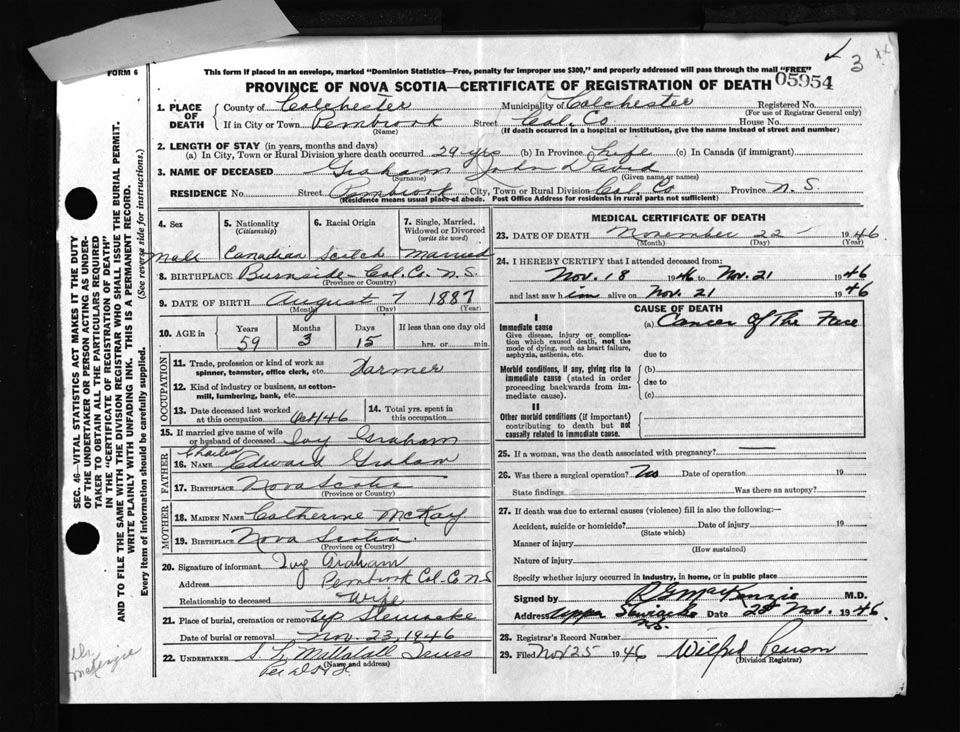 3
FORM 6
This form if placed in an envelope, marked "Dominion Statistics—Free, penalty for improper use $300," and properly addressed will pass through the mail "FREE"
PROVINCE OF NOVA SCOTIA—CERTIFICATE OF REGISTRATION OF DEATH 05954
SEC. 46—VITAL STATISTICS ACT MAKES IT THE DUTY
OF THE UNDERTAKER OR PERSON ACTING AS UNDER-
TAKER TO OBTAIN ALL THE PARTICULARS REQUIRED
IN THE "CERTIFICATE OF REGISTRATION OF DEATH"
AND TO FILE THE SAME WITH THE DIVISION REGISTRAR WHO SHALL ISSUE THE BURIAL PERMIT.
WRITE PLAINLY WITH UNFADING INK. THIS IS A PERMANENT RECORD.
Every item of information should be carefully supplied. (See reverse side for instructions.)
Dr. McKenzie
1. PLACE OF DEATH
County of Colchester Municipality of Colchester Registered No.
(For use of Registrar General only)
If in City or Town Pembrook Street Col. Co House No.
(Name) (If death occurred in a hospital or institution, give the name instead of street and number)
2. LENGTH OF STAY (in years, months and days)
(a) In City, Town or Rural Division where death occurred 29 yrs (b) In Province Life (c) In Canada (if immigrant)
3. NAME OF DECEASED Graham John David
(Surname) (Given name or names)
RESIDENCE No. Street Pembrook City, Town or Rural Division Col. Co Province N. S.
(Residence means usual place of abode. Post Office Address for residents in rural parts not sufficient)
4. Sex
Male
5. Nationality
(Citizenship)
Canadian
6. Racial Origin
Scitch
7. Single, Married, Widowed or Divorced
(write the word)
Married
8. BIRTHPLACE Burnside Col. Co. N. S.
(Province or Country)
9. DATE OF BIRTH August 7 1887
(Month) (Day) (Year)
10. AGE in
Years Months Days If less than one day old
59 3 15 hrs. or min.
OCCUPATION
11. Trade, profession or kind of work as
spinner, teamster, office clerk, etc. Farmer
12. Kind of industry or business, as cotton-
mill, lumbering, bank, etc.
13. Date deceased last worked
at this occupation Oct/46
14. Total yrs. spent in
this occupation
15. If married give name of wife
or husband of deceased Ivy Graham
FATHER
Charles
16. NAME Edward Graham
17. BIRTHPLACE Nova Scotia
(Province or Country)
MOTHER
18. MAIDEN NAME Catherine McKay
19. BIRTHPLACE Nova Scotia.
(Province or Country)
20. Signature of informant Ivy Graham
Address Pembrook Col. Co N S
Relationship to deceased Wife
21. Place of burial, cremation or removal Up Stewiacke
Date of burial or removal Nov. 23, 1946
22. UNDERTAKER S. L.
(Name and address)
MEDICAL CERTIFICATE OF DEATH
23. DATE OF DEATH November 22 1946
(Month) (Day) (Year)
24. I HEREBY CERTIFY that I attended deceased from:
Nov. 18 1946 to Nov. 21 1946
and last saw him alive on Nov. 21 1946
CAUSE OF DEATH
I
Immediate cause
Give disease, injury or complica-
tion which caused death, not the
mode of dying, such as heart failure,
asphyxia, asthenia, etc.
(a) Cancer Of The Face
due to
Morbid conditions, if any, giving rise to
immediate cause (stated in order
proceeding backwards from im-
mediate cause).
(b)
due to
(c)
II
Other morbid conditions (if important)
contributing to death but not
causally related to immediate cause.
25. If a woman, was the death associated with pregnancy?
26. Was there a surgical operation? No Date of operation 19
State findings Was there an autopsy?
27. If death was due to external causes (violence) fill in also the following:—
Accident, suicide or homicide? Date of injury 19
(State which)
Manner of injury
(How sustained)
Nature of injury
Specify whether injury occurred in industry, in home, or in public place
Signed by MacKenzie M.D.
Address Upper Stewiacke N.S. Date 23 Nov. 1946
28. Registrar's Record Number
29. Filed Nov 25 1946 Wilfred Pearson
(Division Registrar)